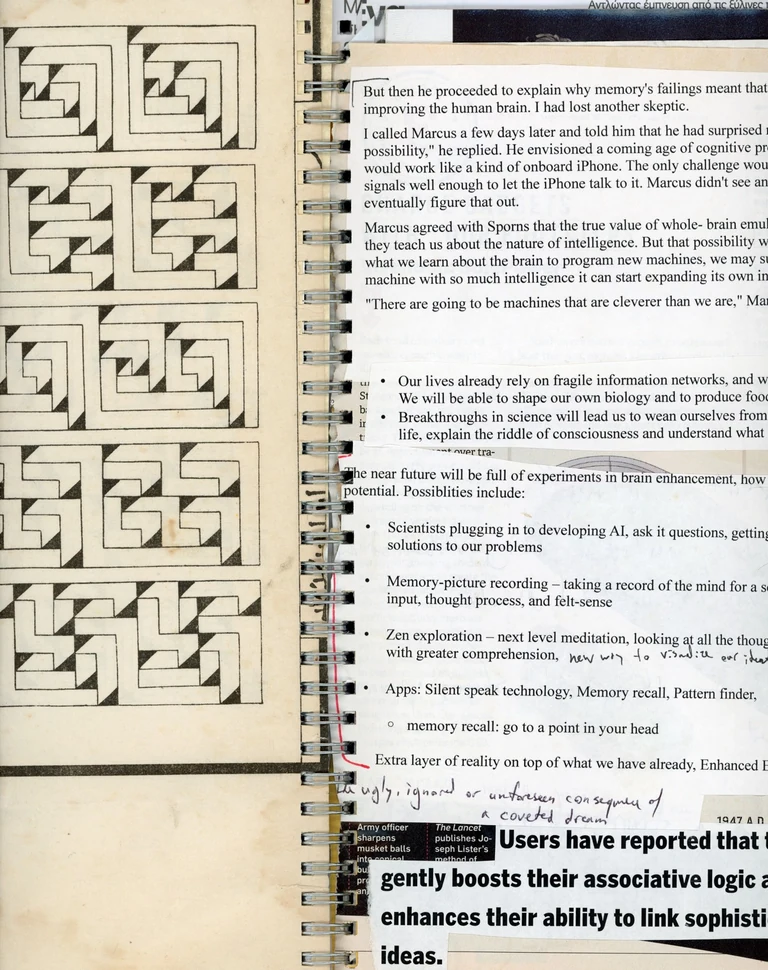 Αντλώντας έμπνευση από τις ξύλινες
But then he proceeded to explain why memory's failings meant that
improving the human brain. I had lost another skeptic.
I called Marcus a few days later and told him that he had surprised
possibility," he replied. He envisioned a coming age of cognitive pr
would work like a kind of onboard iPhone. The only challenge wou
signals well enough to let the iPhone talk to it. Marcus didn't see an
eventually figure that out.
Marcus agreed with Sporns that the true value of whole- brain emul
they teach us about the nature of intelligence. But that possibility w
what we learn about the brain to program new machines, we may su
machine with so much intelligence it can start expanding its own in
"There are going to be machines that are cleverer than we are," Mar
• Our lives already rely on fragile information networks, and w
We will be able to shape our own biology and to produce food
• Breakthroughs in science will lead us to wean ourselves from
life, explain the riddle of consciousness and understand what
over tra-
The near future will be full of experiments in brain enhancement, how
potential. Possiblities include:
• Scientists plugging in to developing AI, ask it questions, getting
solutions to our problems
• Memory-picture recording – taking a record of the mind for a s
input, thought process, and felt-sense
• Zen exploration – next level meditation, looking at all the thoug
with greater comprehension, new way to visualize our ideas
• Apps: Silent speak technology, Memory recall, Pattern finder,
○ memory recall: go to a point in your head
Extra layer of reality on top of what we have already, Enhanced E
ugly, ignored or unforeseen consequence of
a coveted dream
1947 A.D.
Army officer
sharpens
musket balls
into conical
The Lancet
publishes Jo-
seph Lister's
method of
Users have reported that t
gently boosts their associative logic a
enhances their ability to link sophisti
ideas.